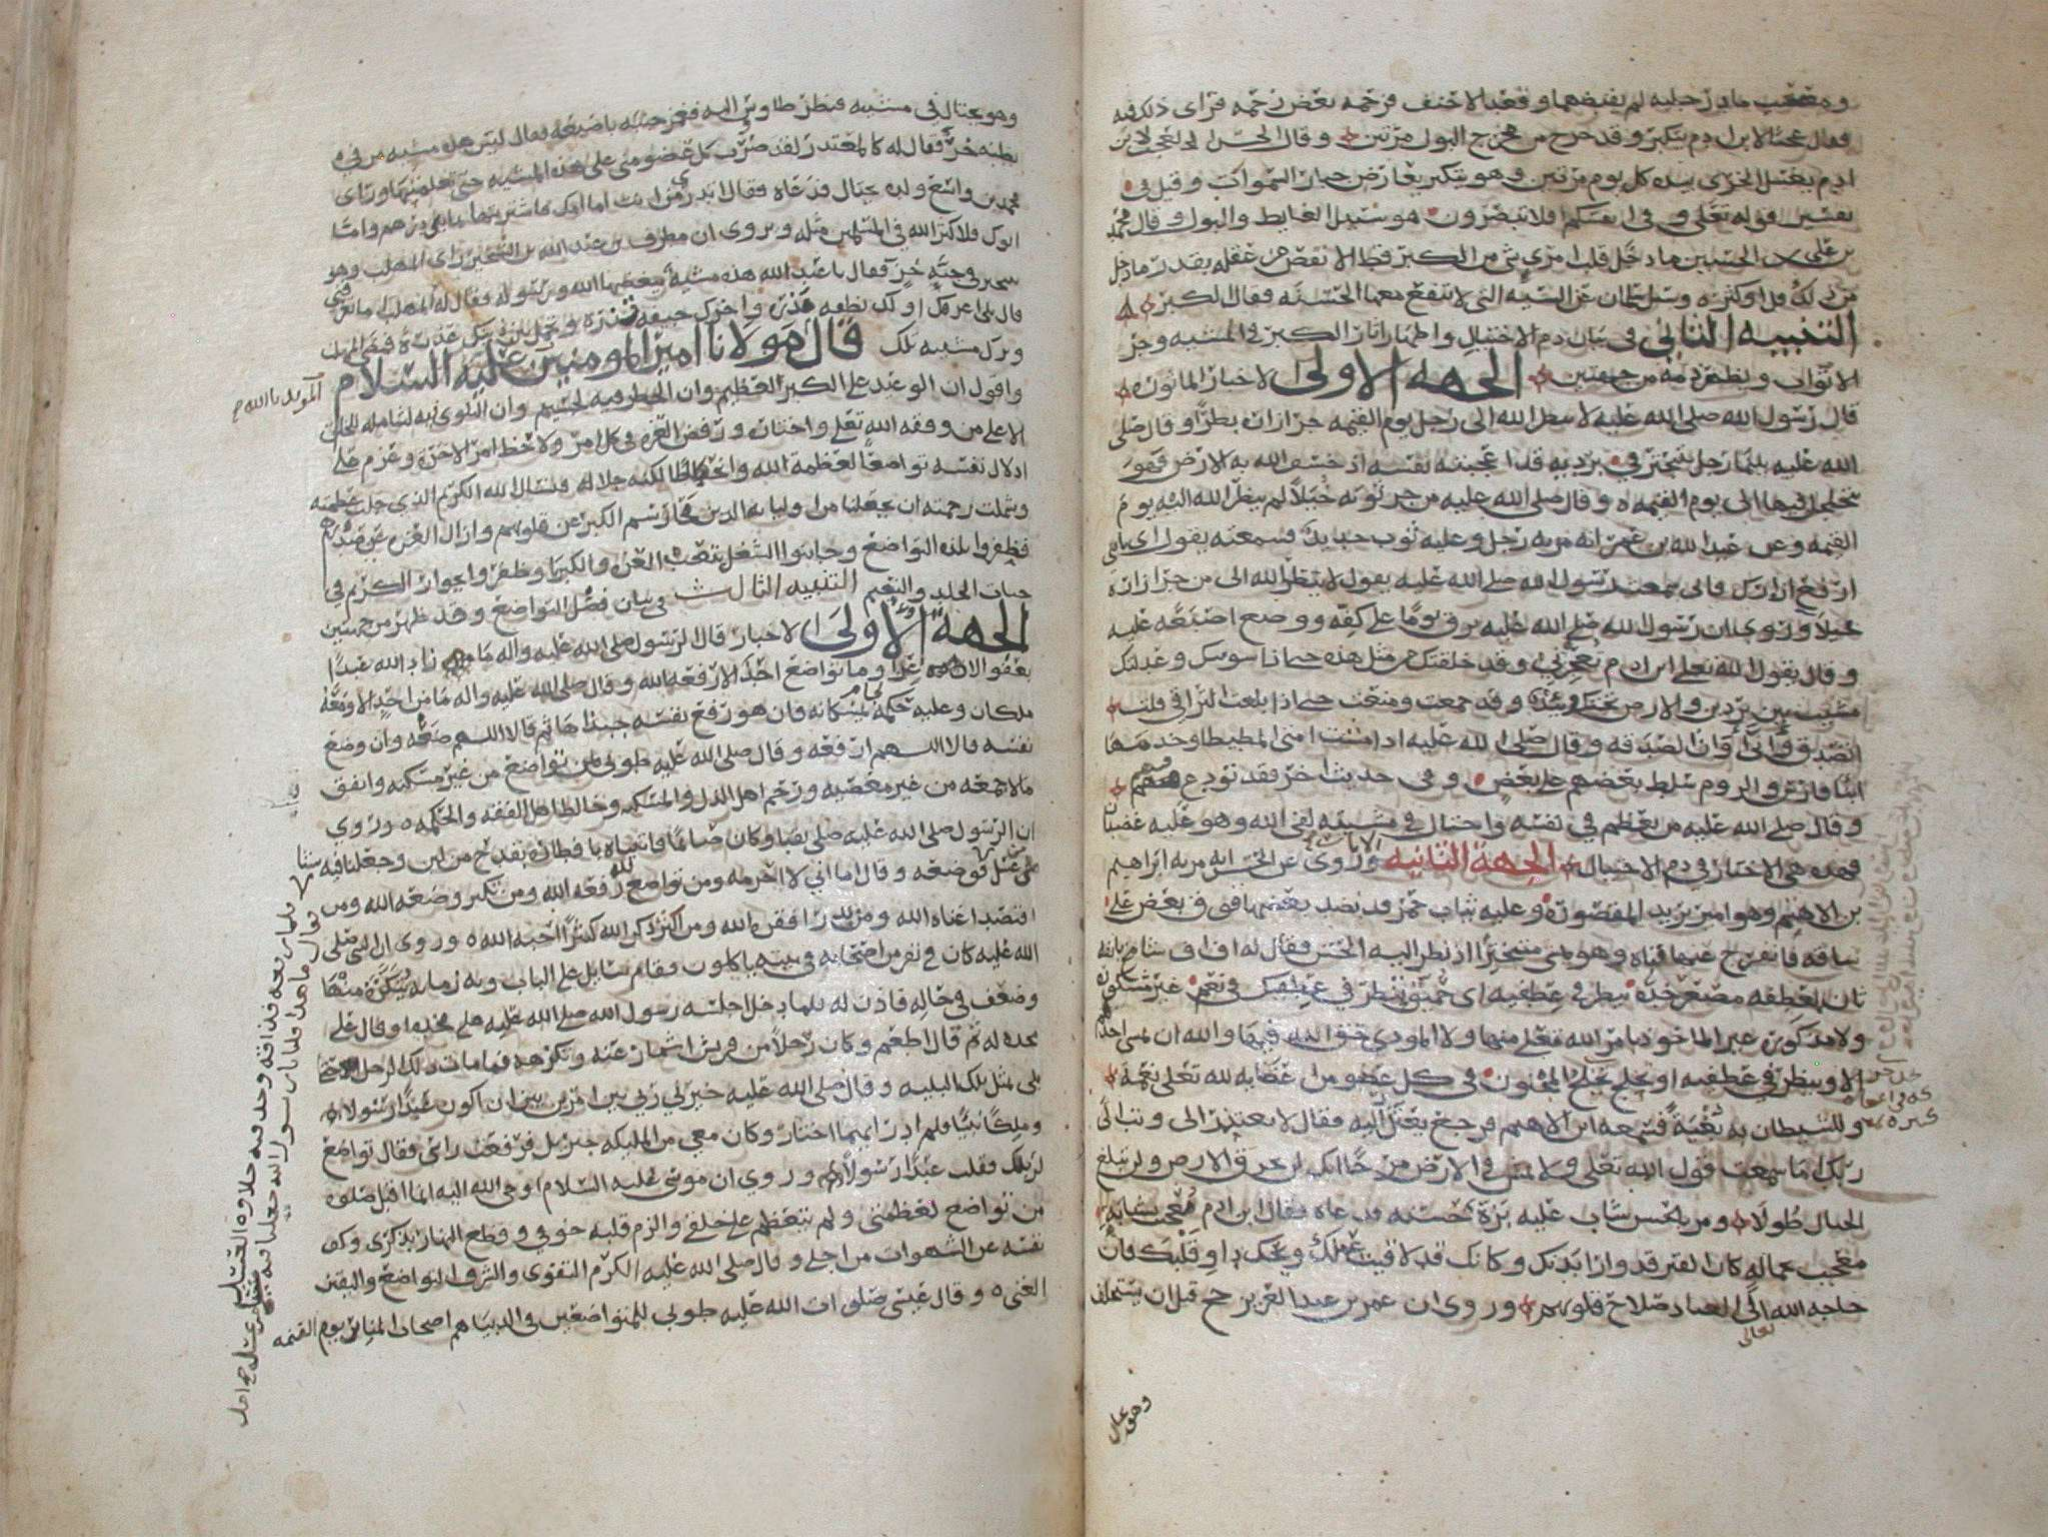 ومصعب ماد رجليه لم يقبضهما وقعد الاحنف فزحمه بعض زحمه فراى ذلك فيه
وقال عجبا لابن ادم يتكبر وقد خرج من مخرج البول مرتين وقال الحسن العجب لابن
ادم يغسل الخرى بيده كل يوم مرتين وهو يتكبر يعارض جبار السموات وقيل في
تفسير قوله تعلى وفي انفسكم افلا تبصرون هو سبيل الغايط والبول وقال محمد
بن على بن الحسين ما دخل قلب امرئ شي من الكبر قط الا نقص من عقله بقدر ما دخل
من ذلك قل او كثر وسئل سلمان عن السيه التي لا تنفع معها الحسنه فقال الكبر
التنبيه الثاني في بيان ذم الاختيال واظهار اثار الكبر في المشيه وجر
الاثواب ويظهر ذمه من جهتين الجهه الاولى الاخبار الماثوره
قال رسول الله صلى الله عليه لا ينظر الله الى رجل يوم القيمه جر ازاره بطرا وقال صلى
الله عليه بينما رجل يتبختر في برديه قد اعجبته نفسه اذ خسف الله به الارض فهو
يتجلجل فيها الى يوم القيمه وقال صلى الله عليه من جر ثوبه خيلا لم ينظر الله اليه يوم
القيمه وعن عبد الله بن عمر انه مر به رجل وعليه ثوب جديد فسمعته يقول اي بني
ارفع ازارك فاني سمعت رسول الله صلى الله عليه يقول لا ينظر الله الى من جر ازاره
خيلا وروي ان رسول الله صلى الله عليه بزق يوما على كفه ووضع اصبعه عليه
وقال يقول الله تعلى ابن ادم تعجزني وقد خلقتك من مثل هذه حتى اذا سويتك وعدلتك
مشيت بين بردين والارض تحتك وئيد وقد جمعت ومنعت حتى اذا بلغت التراقي قلت
اتصدق وانى اوان الصدقه وقال صلى الله عليه اذا مشت امتي المطيطا وخدمتها
ابنا فارس والروم سلط بعضهم على بعض وفي حديث اخر فقد تودع منهم
وقال صلى الله عليه من تعظم في نفسه واختال في مشيته لقى الله وهو عليه غضبان
فهذه هي الاخبار في ذم الاختيال الجهة الثانيه الاثار وروى عن الحسن انه مر به ابراهيم
بن الاهيم وهو امير يريد المقصوره وعليه ثياب خز قد نضد بعضها فوق بعض على
ساقه فانفرج عنها قباه وهو يمشي متبخترا اذ نظر اليه الحسن فقال له اف اف شامخ بانفه
ثان لعطفه مصعر خده ينظر في عطفيه اي حميق ينظر في عطفيك في نعم غير مشكوره
ولا مذكوره غير الماخوذ بامر الله تعلى منها ولا المودي حق الله فيها والله ان يمشي احد
الا وينظر في عطفيه او يخلج تخلج المجنون في كل عضو من اعضايه لله تعلى نعمة
وللشيطان به لعنة فسمعه ابن الاهيم فرجع يعتذر اليه فقال لا تعتذر الى وتب الى
ربك اما سمعت قول الله تعلى ولا تمش في الارض مرحا انك لن تخرق الارض ولن تبلغ
الجبال طولا ومر بالحسن شاب عليه بزة حسنه فدعاه فقال ابن ادم معجب بشبابه
معجب بجماله كان القبر قد وارا بدنك وكانك قد لاقيت عملك ويحك داو قلبك فان
حاجه الله الى العباد صلاح قلوبهم وروي ان عمر بن عبد العزيز حج قبل ان يستخلف
تعالى
وهو يختال
وهو يختال في مشيه فنظر طاوس اليه فغمز جنبه باصبعه فقال ليس هذه مشيه من في
بطنه خرؤ فقال له كالمعتذر لقد ضرب كل عضو مني على هذه المشيه حتى تعلمتها وراى
محمد بن واسع ولده يختال فدعاه فقال اتدري من انت اما امك فاشتريتها بمايتي درهم واما
ابوك فلا كثر الله في المسلمين مثله وروى ان مطرف بن عبد الله بن الشخير راى المهلب وهو
يتبختر في جبة خز فقال يا عبد الله هذه مشية يبغضها الله ورسوله فقال له المهلب اما تعرفني
قال بلى اعرفك اولك نطفه مذره واخرك جيفه قذره وتحمل بين ذلك عذرة فمضى المهلب
وترك مشيته تلك قال مولانا امير المومنين عليه السلام
المويد بالله
واقول ان الوعيد على الكبر العظيم وان الخطر فيه لجسيم وان البلوى به لشامله للخلق
الا على من وفقه الله تعلى واختاره ورفض العزه في كل امر ولاحظ امر الاخرة وعزم على
اذلال نفسه تواضعا لعظمة الله وانحطاطا لكنه جلاله فنسال الله الكريم الذي جلت عظمته
وشملت رحمته ان يجعلنا من اوليايه الدين محا رسم الكبر عن قلوبهم وازال العزه عن صدورهم
فظفروا بلذه التواضع وجانبوا الشغل بتعب العزه والكبريا وظفروا بجوار الكريم في
جنات الخلد والنعيم التنبيه الثالث في بيان فضل التواضع وقد ظهر من جهتين
الجهة الاولى الاخبار قال الرسول صلى الله عليه واله ما زاد الله عبدا
بعفو الا عزا وما تواضع احد الا رفعه الله وقال صلى الله عليه واله ما من احد الا ومعه
ملكان وعليه حكمة يمسكانه فان هو رفع نفسه جبذاها ثم قالا اللهم ضعه وان وضع
نفسه قالا اللهم ارفعه وقال صلى الله عليه طوبى لمن تواضع من غير مسكنه وانفق
مالا جمعه من غير معصيه ورحم اهل الذل والمسكنه وخالط اهل الفقه والحكمه وروي
ان الرسول صلى الله عليه صلى بقبا وكان صايما فاتيناه بافطاره بقدح من لبن وجعلنا فيه شيا
من عسل فوضعه وقال اما اني لا احرمه ومن تواضع لله رفعه الله ومن تكبر وضعه الله ومن
اقتصد اغناه الله ومن بذر افقره الله ومن اكثر ذكر الله كثيرا احبه الله وروى ان النبي صلى
الله عليه كان في نفر من اصحابه في بيته ياكلون فقام سايل على الباب وبه زمانه يتكره منها
وضعف في حاله فاذن له فلما دخل اجلسه رسول الله صلى الله عليه على فخذه او قال على
فخذه له ثم قال اطعم وكان رجلا من قريش اشمأز عنه وتكرهه فما مات ذلك الرجل حتى
بلى بمثل تلك البليه وقال صلى الله عليه خيرني ربي بين امرين بين ان اكون عبدا رسولا او
وملكا نبيا فلم ادر ايهما اختار وكان معي من الملايكه جبريل فرفعت راسي فقال تواضع
لربك فقلت عبدا رسولا وروي ان موسى عليه السلام اوحى الله اليه انما اقبل صلوه
من تواضع لعظمتي ولم يتعظم على خلقي والزم قلبه خوفي وقطع النهار بذكري وكف
نفسه عن الشهوات من اجلي وقال صلى الله عليه الكرم التقوى والشرف التواضع واليقين
الغنى وقال عيسى صلوات الله عليه طوبى للمتواضعين في الدنيا هم اصحاب المنابر يوم القيمه
فلما رفعه فذاقه وجد فيه حلاوه العسل
فقال ما هذا قلنا يا رسول الله جعلنا فيه شيا من عسل